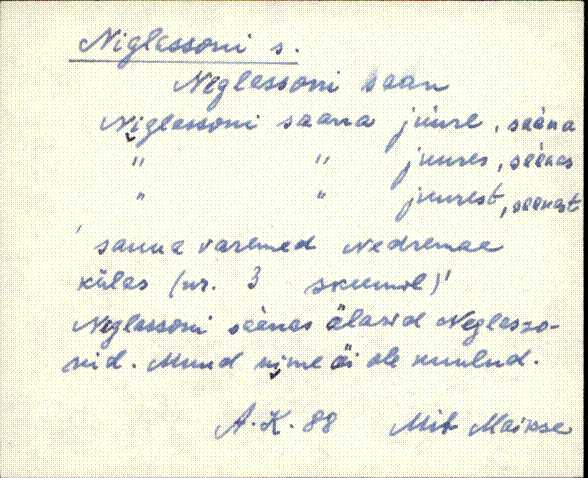 Niglassoni s.
Neglassoni saan
Niglassoni saana juure, saana
" " juures, saanas
" " juurest, saanast
'sauna varemed Nedremäe
külas (nr. 3 skeemil)'
Neglassoni säänas älasid Neglasso-
nid. Muud nime äi ole kuulud.
A.K. 88